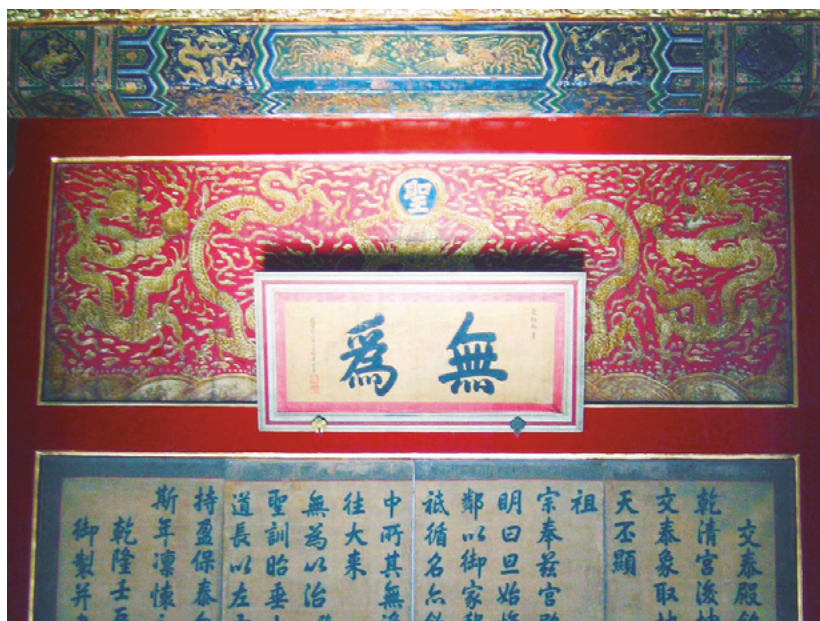 聖
無爲
交泰殿銘
乾清宮後
交泰象取
天丕顯
祖
宗奉茲宮
明曰旦始
鄰以御家
祗循名
中所其無
往大来
無為以治
聖訓昭垂
道長以左
持盈保泰
斯年凛懷
乾隆壬
御製并